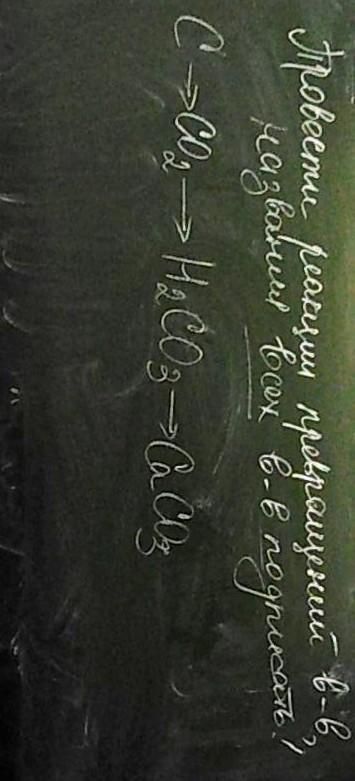 Провести реакции превращений в-в,
названия всех в-в подписать!
C → CO₂ → H₂CO₃ → CaCO₃